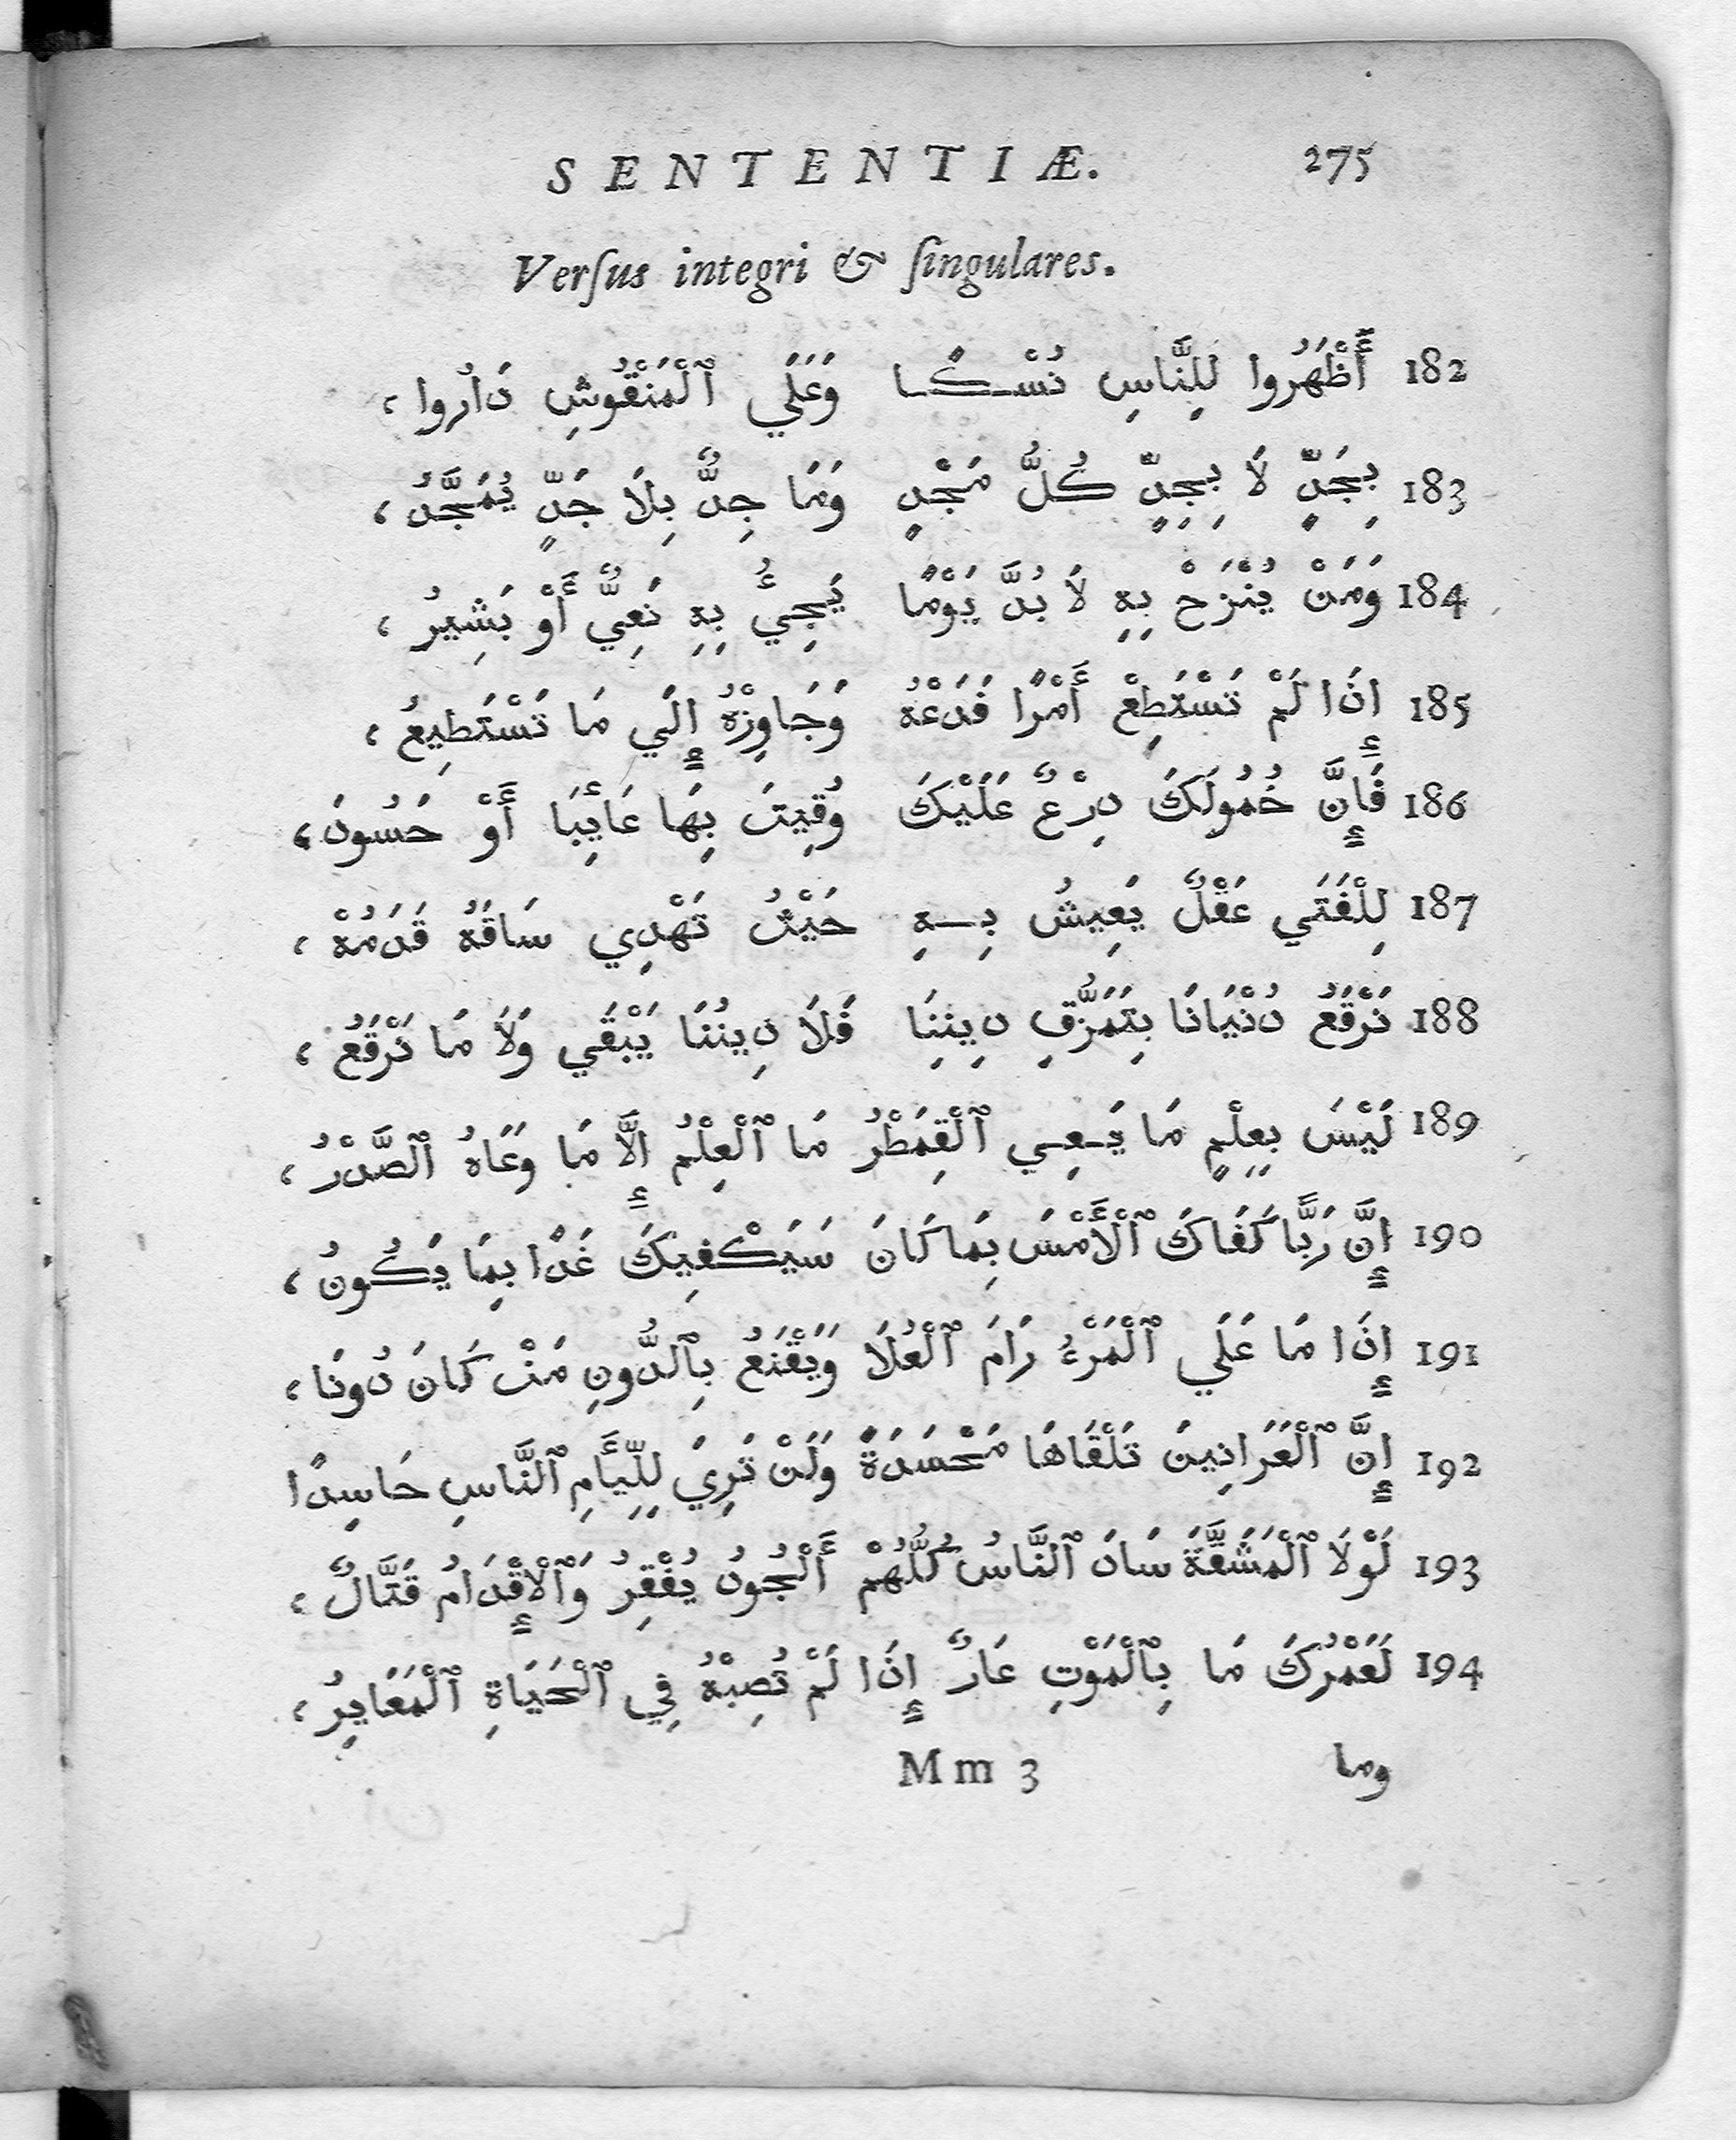 SENTENTIÆ. 275
Verſus integri & ſingulares.
182 أَظْهَرُوا لِلنَّاسِ نُسْكًا وَعَلَي ٱلْمَنْقُوشِ دَارُوا ،
183 بِجَدٍّ لَا بِجِدٍّ كُلُّ مَجْدٍ وَمَا جِدٌّ بِلَا جَدٍّ يُمَجَّدُ ،
184 وَمَنْ يُنْزَحْ بِهِ لَا بُدَّ يَوْمًا يَجِئُ بِهِ نَعِيٌّ أَوْ بَشِيرُ ،
185 إِذَا لَمْ تَسْتَطِعْ أَمْرًا فَدَعْهُ وَجَاوِزْهُ إِلَي مَا تَسْتَطِيعُ ،
186 فَإِنَّ خُمُولَكَ دِرْعٌ عَلَيْكَ وُقِيتَ بِهَا عَائِبَا أَوْ حَسُودَ ،
187 لِلْفَتَي عَقْلٌ يَعِيشُ بِهِ حَيْثُ تَهْدِي سَاقَهُ قَدَمُهْ ،
188 نَرْقَعُ دُنْيَانَا بِتَمَزُّقِ دِينِنَا فَلَا دِينُنَا يَبْقَي وَلَا مَا نَرْقَعُ ،
189 لَيْسَ بِعِلْمٍ مَا يَعِي ٱلْقِمَطْرُ مَا ٱلْعِلْمُ إِلَّا مَا وَعَاهُ ٱلصَّدْرُ ،
190 إِنَّ رَبًّا كَفَاكَ ٱلْأَمْسَ بِمَا كَانَ سَيَكْفِيكَ غَدًا بِمَا يَكُونُ ،
191 إِذَا مَا عَلَي ٱلْمَرْءُ رَامَ ٱلْعُلَا وَيَقْنَعُ بِٱلدُّونِ مَنْ كَانَ دُونَا ،
192 إِنَّ ٱلْعَرَانِينَ تَلْقَاهَا مَحْسَدَةً وَلَنْ تَرِيَ لِلِّئَامِ ٱلنَّاسِ حَاسِدًا
193 لَوْلَا ٱلْمَشَقَّةُ سَادَ ٱلنَّاسُ كُلُّهُمْ أَلْجُودُ يُفْقِرُ وَٱلْإِقْدَامُ قَتَّالٌ ،
194 لَعَمْرُكَ مَا بِٱلْمَوْتِ عَارٌ إِذَا لَمْ تُصِبْهُ فِي ٱلْحَيَاةِ ٱلْمَعَايِرُ ،
Mm 3 وما